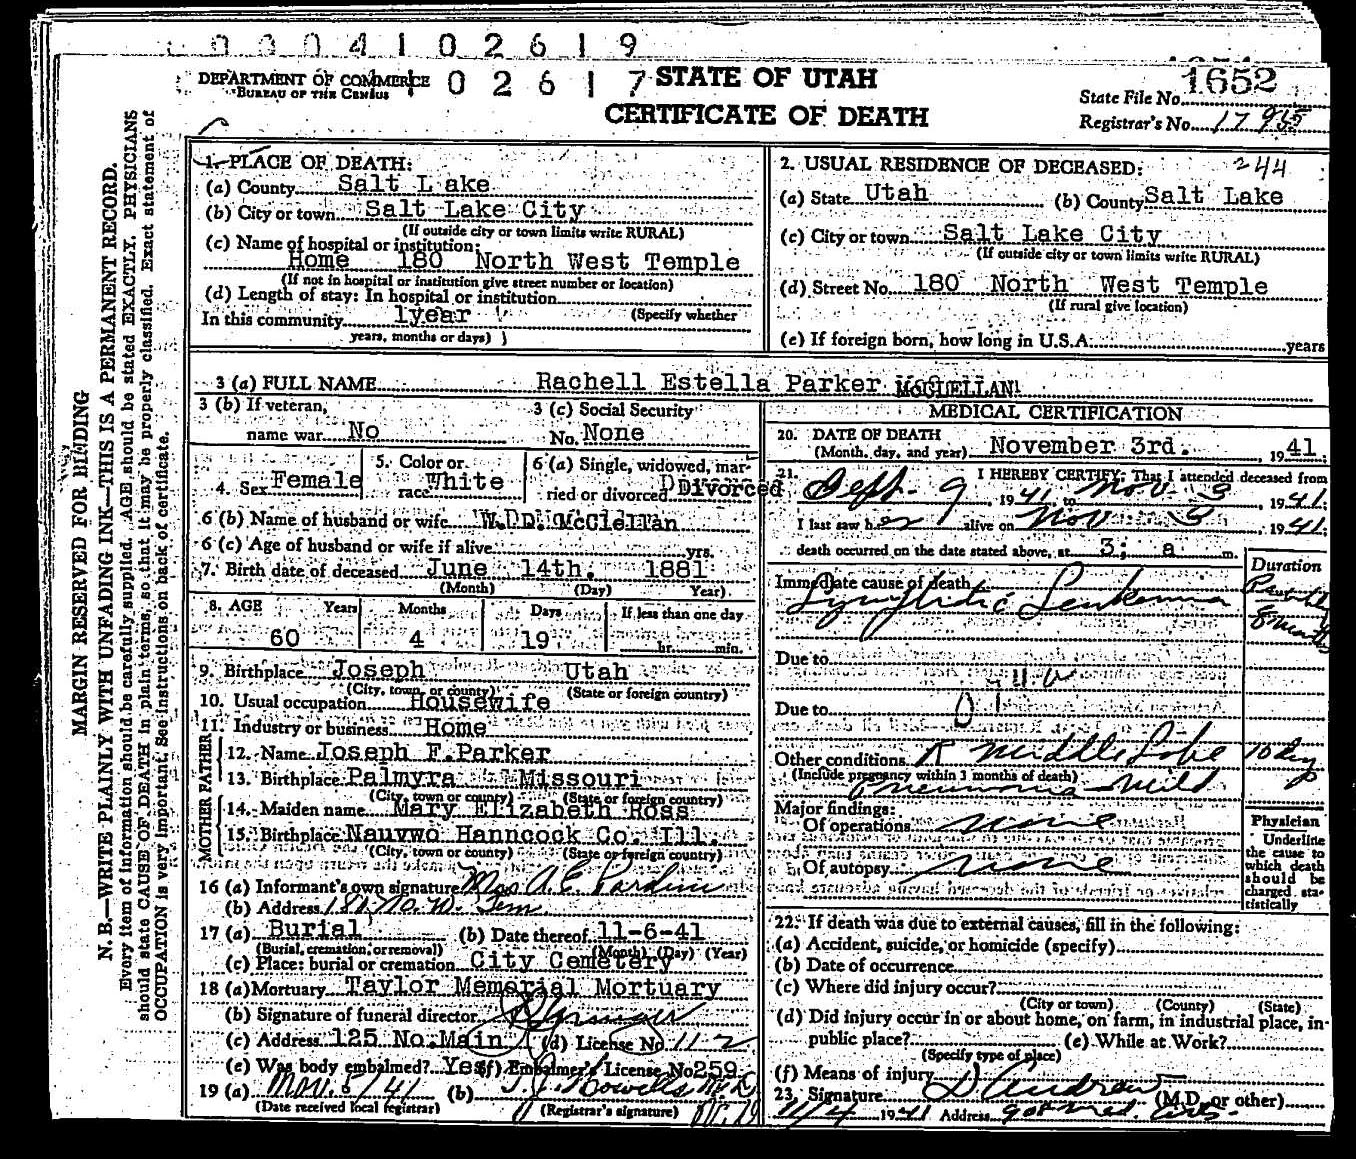 0 0 0 4 1 0 2 6 1 9
DEPARTMENT OF COMMERCE 1 0 2 6 1 7 STATE OF UTAH 1652
BUREAU OF THE CENSUS
CERTIFICATE OF DEATH
State File No.
Registrar's No. 17
1. PLACE OF DEATH:
(a) County Salt Lake
(b) City or town Salt Lake City
(If outside city or town limits write RURAL)
(c) Name of hospital or institution:
Home 180 North West Temple
(If not in hospital or institution give street number or location)
(d) Length of stay: In hospital or institution
In this community 1year (Specify whether
years, months or days)
2. USUAL RESIDENCE OF DECEASED: 244
(a) State Utah (b) County Salt Lake
(c) City or town Salt Lake City
(If outside city or town limits write RURAL)
(d) Street No. 180 North West Temple
(If rural give location)
(e) If foreign born, how long in U.S.A. years
3 (a) FULL NAME Rachell Estella Parker McCLELLAN
3 (b) If veteran,
name war No
3 (c) Social Security
No. None
4. Sex Female
5. Color or
race White
6 (a) Single, widowed, mar-
ried or divorced Divorced
6 (b) Name of husband or wife W.D. McClellan
6 (c) Age of husband or wife if alive yrs.
7. Birth date of deceased June 14th. 1881
(Month) (Day) Year)
8. AGE Years Months Days If less than one day
60 4 19 hr. min.
9. Birthplace Joseph Utah
(City, town, or county) (State or foreign country)
10. Usual occupation Housewife
11. Industry or business Home
FATHER
12. Name Joseph F.Parker
13. Birthplace Palmyra Missouri
(City, town or county) (State or foreign country)
MOTHER
14. Maiden name Mary Elizabeth Ross
15. Birthplace Nauvwo Hanncock Co. Ill.
(City, town or county) (State or foreign country)
16 (a) Informant's own signature Mrs A.E.
(b) Address 180 No. W. Tem
17 (a) Burial (b) Date thereof 11-6-41
(Burial, cremation, or removal) (Month) (Day) (Year)
(c) Place: burial or cremation City Cemetery
18 (a) Mortuary Taylor Memorial Mortuary
(b) Signature of funeral director
(c) Address 125 No.Main (d) License No. 11-2
(e) Was body embalmed? Yes (f) Embalmer's License No 259
19 (a) Nov. 5/41 (b)
(Date received local registrar) (Registrar's signature)
MEDICAL CERTIFICATION
20. DATE OF DEATH
(Month, day, and year) November 3rd. 1941
21. I HEREBY CERTIFY: That I attended deceased from
Sept. 9, 1941, to Nov 3, 1941;
I last saw her alive on Nov 3, 1941;
death occurred on the date stated above, at 3; a m.
Duration
Immediate cause of death
Lymphatic Leukemia
Due to
Due to
Other conditions R Middle Lobe 10 days
(Include pregnancy within 3 months of death)
Pneumonia Mild
Major findings:
Of operations none
Of autopsy none
Physician
Underline
the cause to
which death
should be
charged sta-
tistically
22. If death was due to external causes, fill in the following:
(a) Accident, suicide, or homicide (specify)
(b) Date of occurrence
(c) Where did injury occur?
(City or town) (County) (State)
(d) Did injury occur in or about home, on farm, in industrial place, in
public place? (e) While at Work?
(Specify type of place)
(f) Means of injury
23. Signature (M.D. or other)
11/4 1941 Address
MARGIN RESERVED FOR BINDING
N. B.—WRITE PLAINLY WITH UNFADING INK—THIS IS A PERMANENT RECORD.
Every item of information should be carefully supplied. AGE should be stated EXACTLY. PHYSICIANS
should state CAUSE OF DEATH in plain terms, so that it may be properly classified. Exact statement of
OCCUPATION is very important. See instructions on back of certificate.